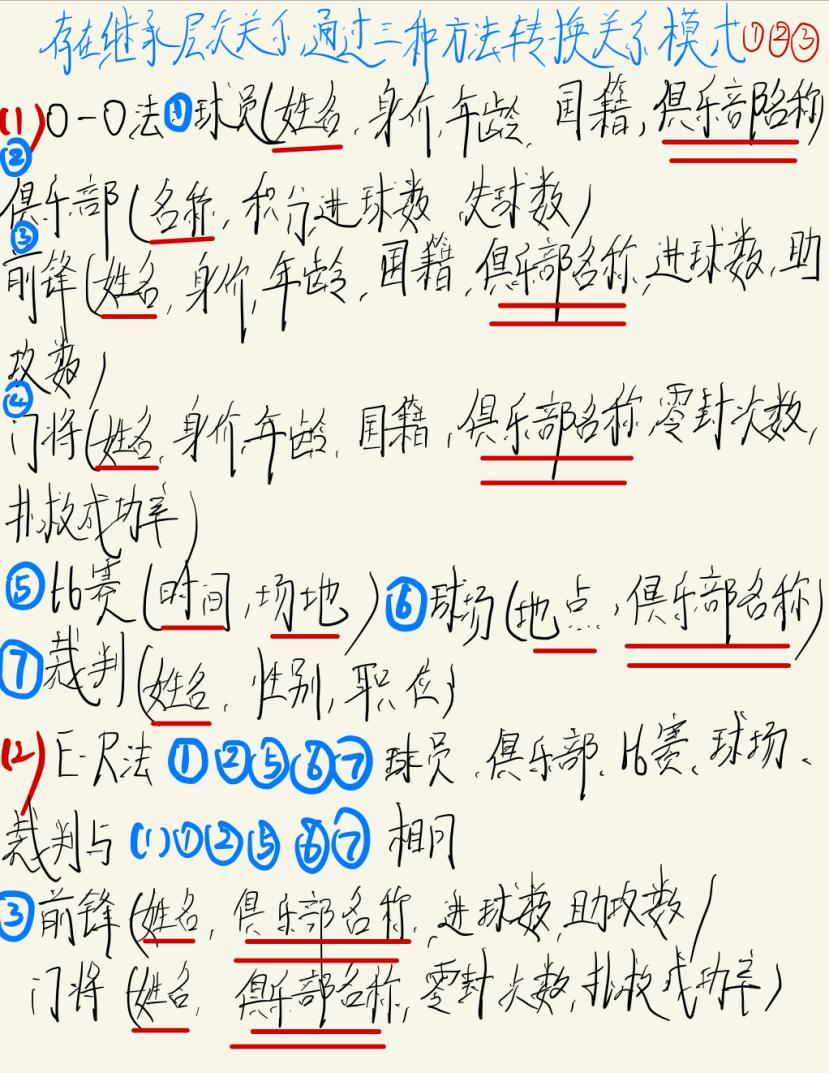 存在继承层次关系,通过三种方法转换关系模式①②③
(1) O-O法①球员(姓名,身价,年龄,国籍,俱乐部名称)
②
俱乐部(名称,积分,进球数 失球数)
③
前锋(姓名,身价,年龄,国籍,俱乐部名称,进球数,助
攻数)
④
门将(姓名,身价,年龄,国籍,俱乐部名称,零封次数,
扑救成功率)
⑤比赛(时间,场地)⑥球场(地点,俱乐部名称)
⑦裁判(姓名,性别,职位)
(2) E-R法 ①②⑤⑥⑦球员、俱乐部、比赛、球场、
裁判与(1)①②⑤⑥⑦相同
③前锋(姓名,俱乐部名称,进球数,助攻数)
门将(姓名,俱乐部名称,零封次数,扑救成功率)